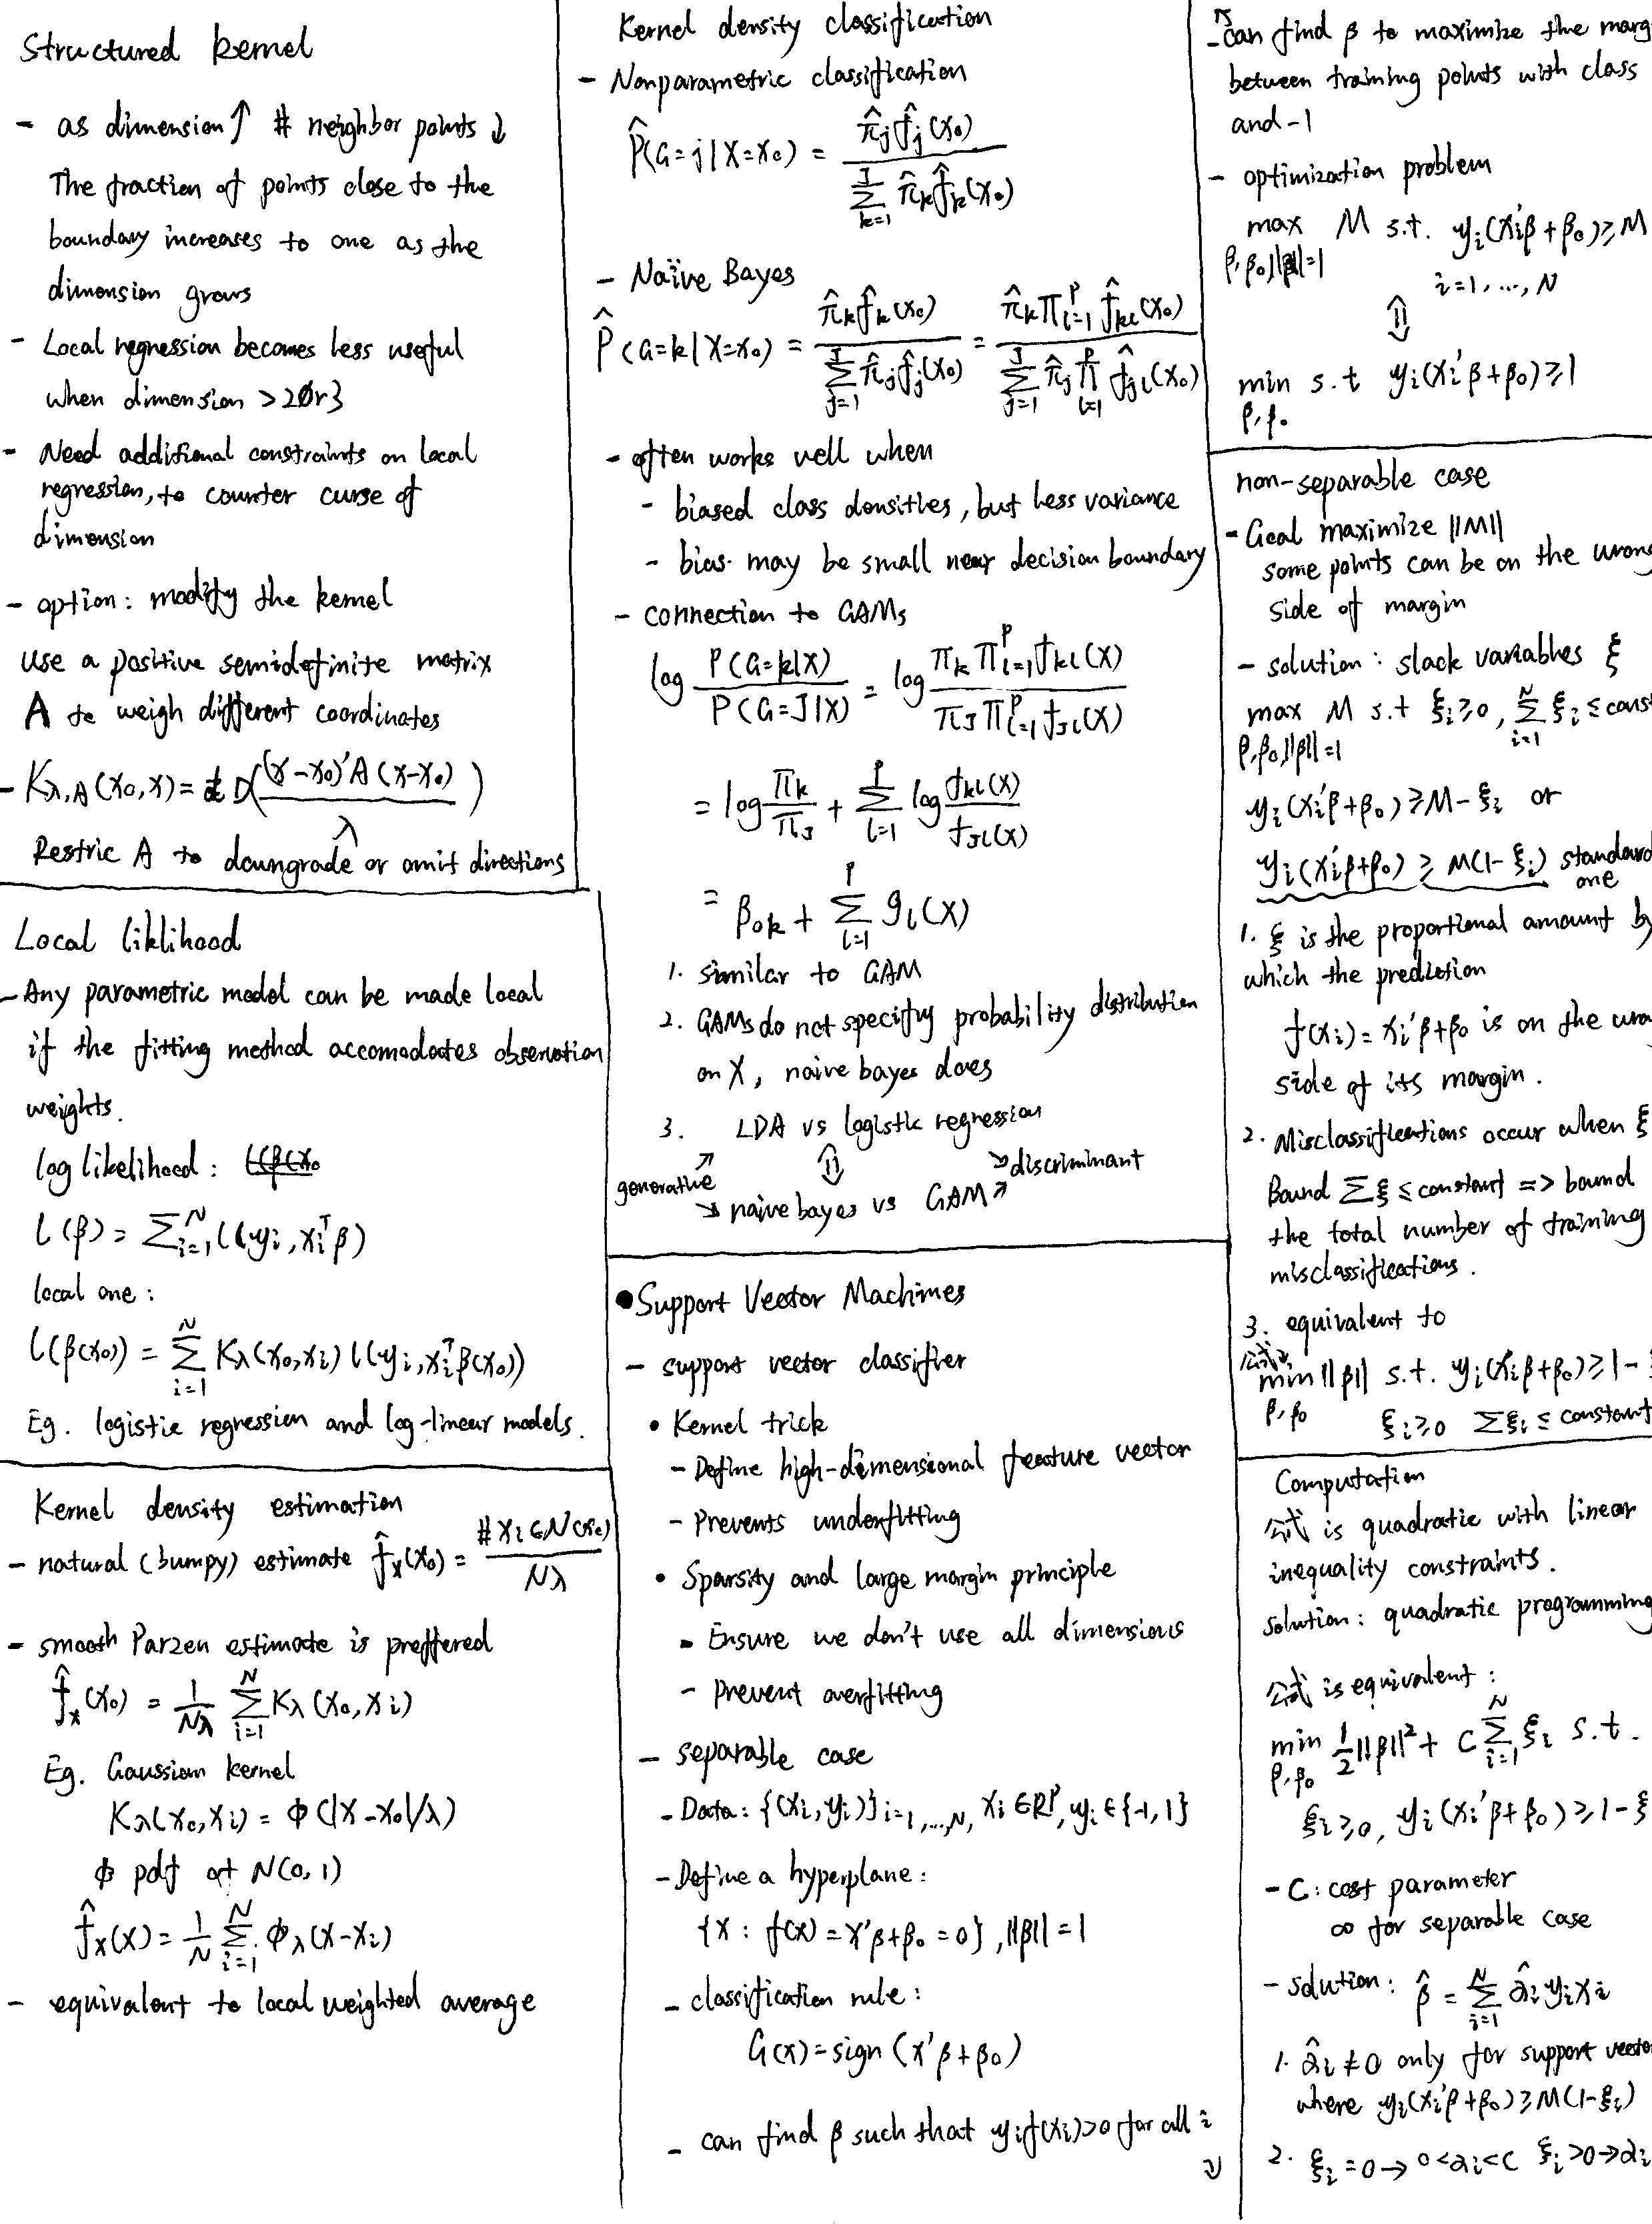 Structured kernel
- as dimension↑ # neighbor points ↓
The fraction of points close to the
boundary increases to one as the
dimension grows
- Local regression becomes less useful
when dimension > 2 or 3
- Need additional constraints on local
regression, to counter curse of
dimension
- option: modify the kernel
use a positive semidefinite matrix
A to weigh different coordinates
- Kλ,A(x₀,x) = D((x-x₀)'A(x-x₀)/λ)
Restric A to downgrade or omit directions
Local liklihood
- Any parametric model can be made local
if the fitting method accomodates observation
weights.
log likelihood: l(β(x₀
l(β) = Σᵢ₌₁ᴺ l(yᵢ, xᵢᵀβ)
local one:
l(β(x₀)) = Σᵢ₌₁ᴺ Kλ(x₀,xᵢ) l(yᵢ, xᵢᵀβ(x₀))
Eg. logistic regression and log-linear models.
Kernel density estimation
- natural (bumpy) estimate f̂x(x₀) = #xᵢ∈N(x₀) / Nλ
- smooth Parzen estimate is preffered
f̂x(x₀) = 1/Nλ Σᵢ₌₁ᴺ Kλ(x₀,xᵢ)
Eg. Gaussian kernel
Kλ(x₀,xᵢ) = φ(|x-x₀|/λ)
φ pdf of N(0,1)
f̂x(x) = 1/N Σᵢ₌₁ᴺ φλ(x-xᵢ)
- equivalent to local weighted average
Kernel density classification
- Nonparametric classification
P̂(G=j|X=x₀) = π̂ⱼf̂ⱼ(x₀) / Σₖ₌₁ᴶ π̂ₖf̂ₖ(x₀)
- Naïve Bayes
P̂(G=k|X=x₀) = π̂ₖf̂ₖ(x₀) / Σⱼ₌₁ᴶ π̂ⱼf̂ⱼ(x₀) = π̂ₖ∏ₗ₌₁ᴾ f̂ₖₗ(x₀) / Σⱼ₌₁ᴶ π̂ⱼ∏ₗ₌₁ᴾ f̂ⱼₗ(x₀)
- often works well when
- biased class densities, but less variance
- bias may be small near decision boundary
- connection to GAMs
log P(G=k|X) / P(G=J|X) = log πₖ∏ₗ₌₁ᴾ fₖₗ(X) / π_J∏ₗ₌₁ᴾ f_Jl(X)
= log πₖ/π_J + Σₗ₌₁ᴾ log fₖₗ(X)/f_Jl(X)
= β₀ₖ + Σₗ₌₁ᴾ gₗ(X)
1. similar to GAM
2. GAMs do not specifiy probability distribution
on X, naive bayes does
3. LDA vs logistic regression
generative ⇕ discriminant
naive bayes vs GAM
• Support Vector Machines
- support vector classifier
• Kernel trick
- Define high-dimensional feature vector
- Prevents underfitting
• Sparsity and large margin principle
- Ensure we don't use all dimensions
- Prevent overfitting
- separable case
- Data: {(xᵢ,yᵢ)}ᵢ₌₁,...,N, xᵢ∈Rᴾ, yᵢ∈{-1,1}
- Define a hyperplane:
{x: f(x) = x'β+β₀ = 0}, ||β|| = 1
- classification rule:
G(x) = sign(x'β+β₀)
- can find β such that yᵢf(xᵢ)>0 for all i
- can find β to maximize the marg
between training points with class
and -1
- optimization problem
max M s.t. yᵢ(xᵢ'β+β₀)≥M
β,β₀,||β||=1 i=1,...,N
⇕
min s.t yᵢ(xᵢ'β+β₀)≥1
β,β₀
non-separable case
- Goal maximize ||M||
some points can be on the wrong
side of margin
- solution: slack variables ξ
max M s.t ξᵢ≥0, Σᵢ₌₁ᴺ ξᵢ ≤ const
β,β₀,||β||=1
yᵢ(xᵢ'β+β₀) ≥ M-ξᵢ or
yᵢ(xᵢ'β+β₀) ≥ M(1-ξᵢ) standard
one
1. ξ is the proportional amount by
which the prediction
f(xᵢ) = xᵢ'β+β₀ is on the wro
side of its margin.
2. Misclassifications occur when ξ
Bound Σξ ≤ constant => bound
the total number of training
misclassifications.
3. equivalent to
公式
min ||β|| s.t. yᵢ(xᵢβ+β₀)≥1-
β,β₀ ξᵢ≥0 Σξᵢ ≤ constant
Computation
公式 is quadratic with linear
inequality constraints.
solution: quadratic programming
公式 is equivalent:
min 1/2||β||² + C Σᵢ₌₁ᴺ ξᵢ s.t.
β,β₀
ξᵢ≥0, yᵢ(xᵢ'β+β₀)≥1-ξ
- C: cost parameter
∞ for separable case
- solution: β̂ = Σᵢ₌₁ᴺ α̂ᵢyᵢxᵢ
1. α̂ᵢ≠0 only for support vector
where yᵢ(xᵢ'β+β₀)≥M(1-ξᵢ)
2. ξᵢ=0→0<αᵢ<C ξᵢ>0→αᵢ